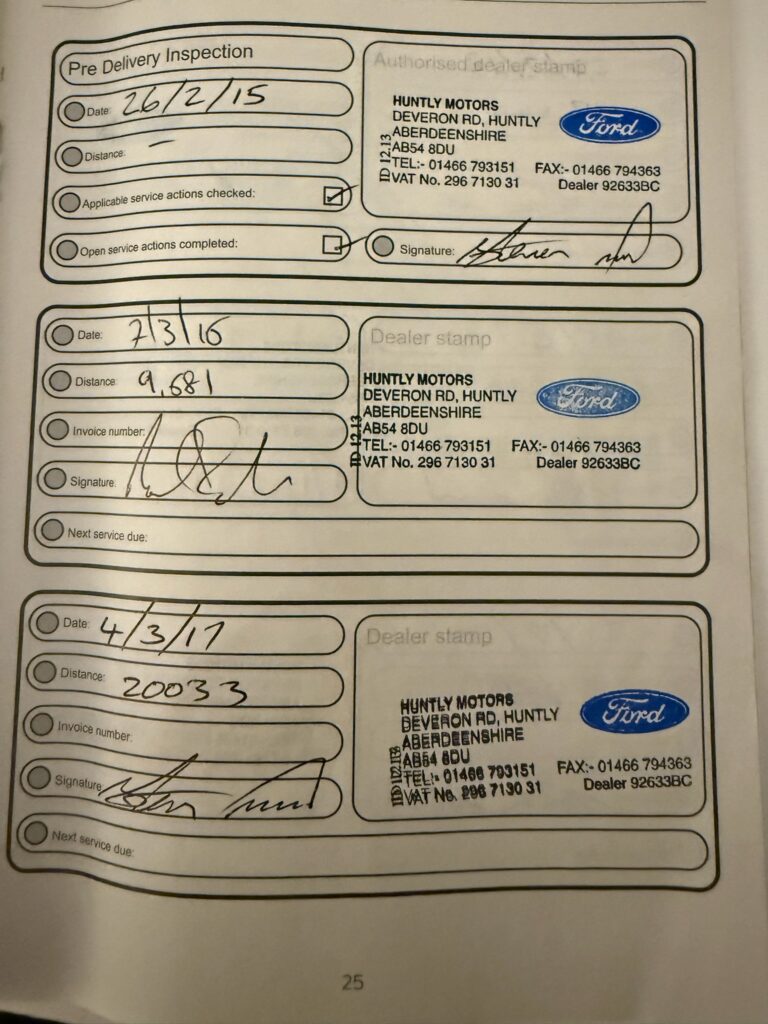 Pre Delivery Inspection
Date: 26/2/15
Distance: –
Applicable service actions checked:
Open service actions completed:
Authorised dealer stamp
HUNTLY MOTORS
DEVERON RD, HUNTLY
ABERDEENSHIRE
AB54 8DU
TEL:- 01466 793151 FAX:- 01466 794363
VAT No. 296 7130 31 Dealer 92633BC
ID 12.13
Ford
Signature:
Date: 7/3/16
Distance: 9,681
Invoice number:
Signature:
Next service due:
Dealer stamp
HUNTLY MOTORS
DEVERON RD, HUNTLY
ABERDEENSHIRE
AB54 8DU
TEL:- 01466 793151 FAX:- 01466 794363
VAT No. 296 7130 31 Dealer 92633BC
ID 12.13
Ford
Date: 4/3/17
Distance: 20033
Invoice number:
Signature
Next service due:
Dealer stamp
HUNTLY MOTORS
DEVERON RD, HUNTLY
ABERDEENSHIRE
AB54 8DU
TEL:- 01466 793151 FAX:- 01466 794363
VAT No. 296 7130 31 Dealer 92633BC
Ford
25